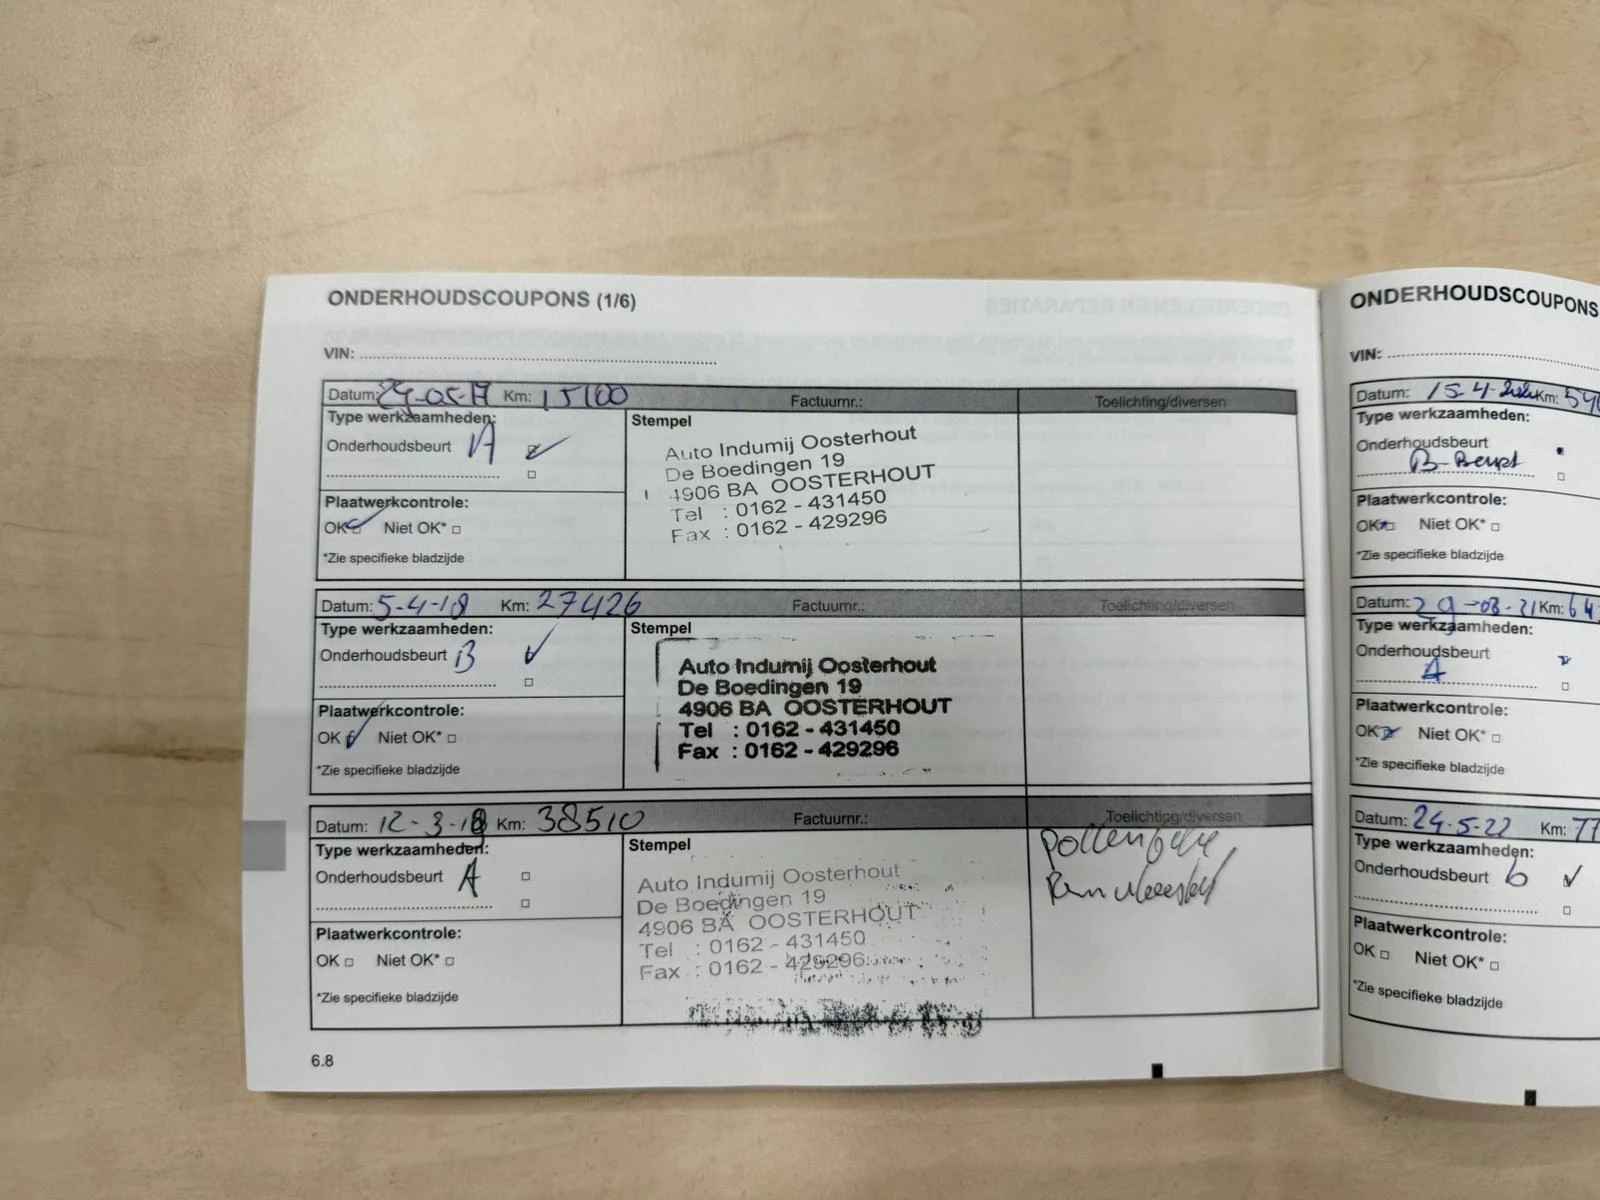 ONDERHOUDSCOUPONS (1/6)
VIN:
Datum: 24-05-17 Km: 15100 Factuurnr.: Toelichting/diversen
Type werkzaamheden:
Onderhoudsbeurt A
Stempel
Auto Indumij Oosterhout
De Boedingen 19
4906 BA OOSTERHOUT
Tel : 0162 - 431450
Fax : 0162 - 429296
Plaatwerkcontrole:
OK Niet OK*
*Zie specifieke bladzijde
Datum: 5-4-18 Km: 27426 Factuurnr.: Toelichting/diversen
Type werkzaamheden:
Onderhoudsbeurt B
Stempel
Auto Indumij Oosterhout
De Boedingen 19
4906 BA OOSTERHOUT
Tel : 0162 - 431450
Fax : 0162 - 429296
Plaatwerkcontrole:
OK Niet OK*
*Zie specifieke bladzijde
Datum: 12-3-18 Km: 38510 Factuurnr.: Toelichting/diversen
Type werkzaamheden:
Onderhoudsbeurt A
Stempel
Auto Indumij Oosterhout
De Boedingen 19
4906 BA OOSTERHOUT
Tel : 0162 - 431450
Fax : 0162 - 429296
Plaatwerkcontrole:
OK Niet OK*
*Zie specifieke bladzijde
6.8
ONDERHOUDSCOUPONS
VIN:
Datum: 15-4-2020 Km: 54
Type werkzaamheden:
Onderhoudsbeurt
B-Beurt
Plaatwerkcontrole:
OK Niet OK*
*Zie specifieke bladzijde
Datum: 29-03-21 Km: 64
Type werkzaamheden:
Onderhoudsbeurt
A
Plaatwerkcontrole:
OK Niet OK*
*Zie specifieke bladzijde
Datum: 24-5-22 Km: 77
Type werkzaamheden:
Onderhoudsbeurt b
Plaatwerkcontrole:
OK Niet OK*
*Zie specifieke bladzijde